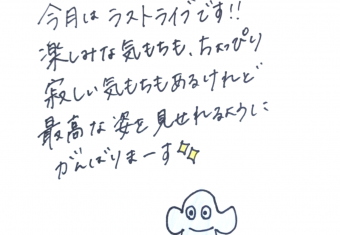 今月は ラストライブです!!
楽しみな気もちも、ちょっぴり
寂しい気もちもあるけれど
最高な姿を見せれるように
がんばりまーす✨